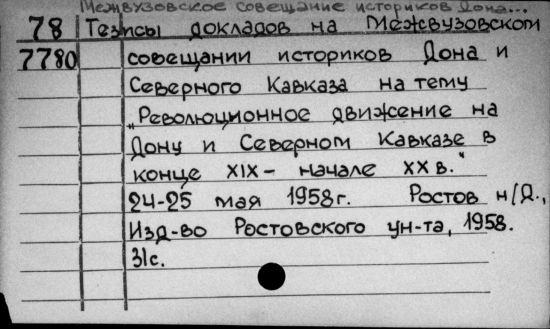 Межвузовское совещание историков Дона...
78 Тезисы докладов на Межвузовском
7780 совещании историков Дона и
Северного Кавказа на тему
„Революционное движение на
Дону и Северном Кавказе в
конце XIX - начале XX в."
24-25 мая 1958г. Ростов н/Д.,
Изд-во Ростовского ун-та, 1958.
31с.